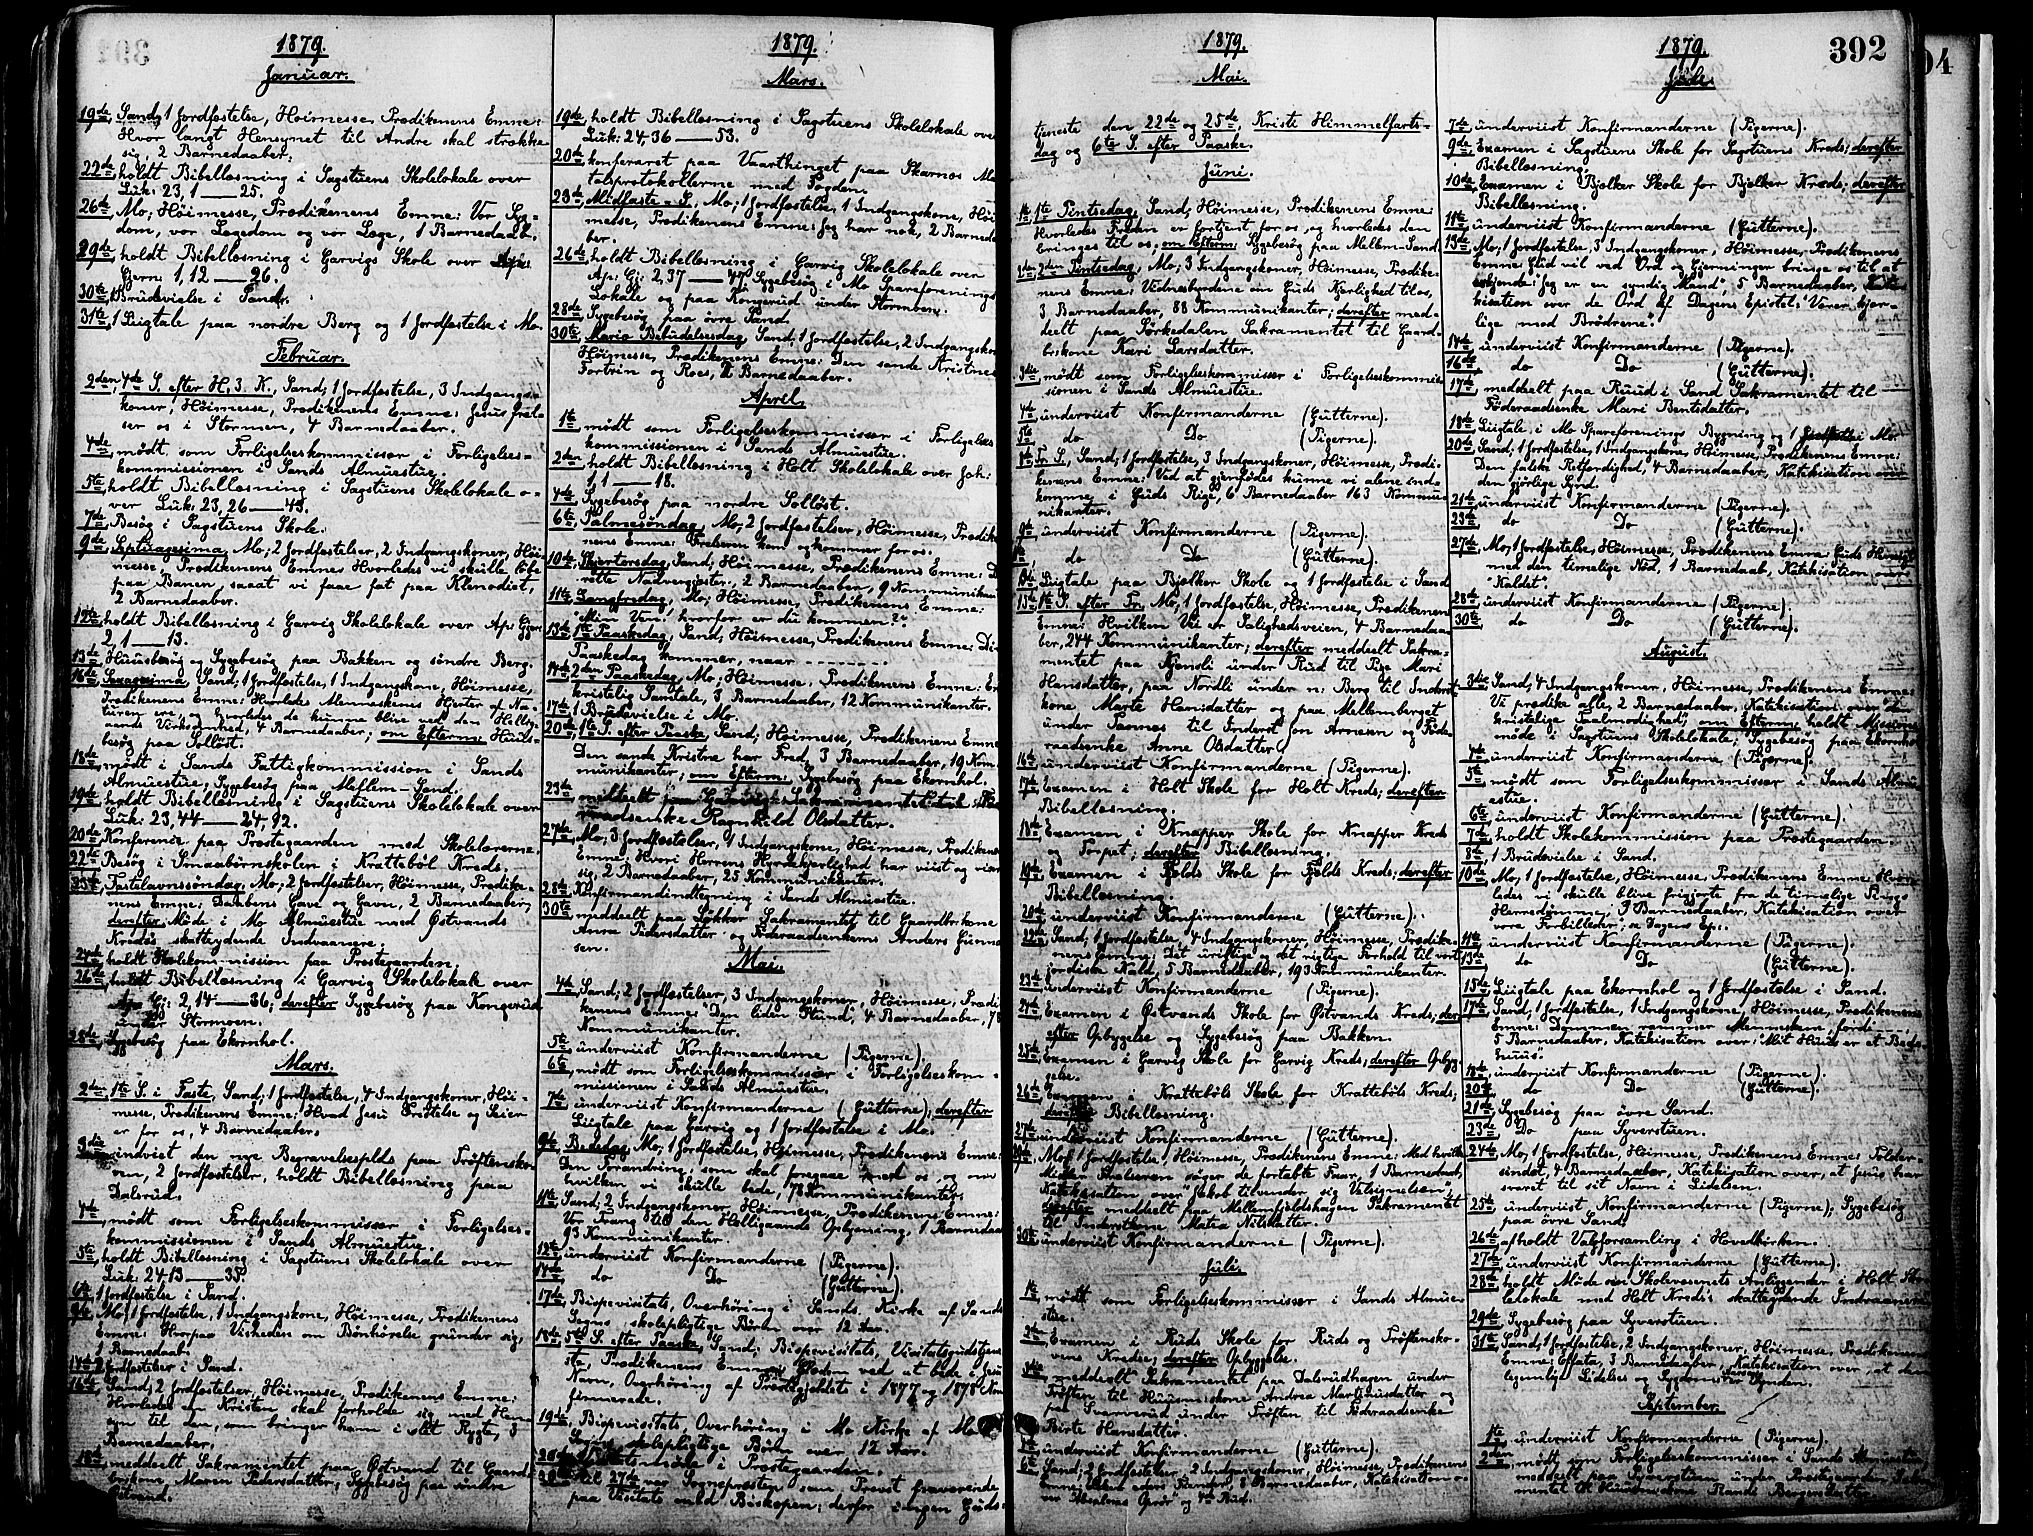 1879.
Januar.
19de, Sand, 1 Jordfæstelse, Høimesse, Prædikenens Emne:
Hvor langt Hensynet til Andre skal strække
sig, 2 Barnedaaber.
22de, holdt Bibellæsning i Sagstuens Skolelokale over
Luk: 23, 1 — 25.
26de, Mo; Høimesse, Prædikenens Emne: Vor Syg-
dom, vor Lægedom og vor Læge, 1 Barnedaab.
29de, holdt Bibellæsning i Garvigs Skole over Ap:
Gjern: 1, 12 — 26.
30te, 1 Brudevielse i Sand.
31te, 1 Liigtale paa nordre Berg og 1 Jordfæstelse i Mo.
Februar.
2den, 4de S. efter H. 3. K., Sand, 1 Jordfæstelse, 3 Indgangs-
koner, Høimesse, Prædikenens Emne: Jesus frel-
ser os i Stormen, 4 Barnedaaber.
4de, mødt som Forligelseskommissær i Forligelses-
kommissionen i Sands Almuestue.
5te, holdt Bibellæsning i Sagstuens Skolelokale o-
ver Luk. 23, 26 — 43.
7de, Besøg i Sagstuens Skole.
9de, Septuagesima, Mo; 2 Jordfæstelser, 2 Indgangskoner, Høi-
messe, Prædikenens Emne: Hvorledes vi skulle løbe
paa Banen, saaat vi faae fat paa Klenodiet,
2 Barnedaaber.
12te, holdt Bibellæsning i Garvig Skolelokale over Ap: Gjer
2, 1 — 13.
13de, Huusbesøg og Sygebesøg paa Bakken og søndre Berg.
16de, Sexagesima, Sand, 1 Jordfæstelse, 1 Indgangskone, Høimesse,
Prædikenens Emne: Hvorledes Menneskenes Hjerter af Na-
turen ere, og hvorledes de kunne blive ved den Hellig-
aands Virksomhed, 4 Barnedaaber; om Efterm: Huus-
besøg paa Solløst.
18de, mødt i Sands Fattigkommission i Sands
Almuestue; Sygebesøg paa Mellem-Sand.
19de, holdt Bibellæsning i Sagstuens Skolelokale over
Luk: 23, 44 — 24, 12.
20de, Konference paa Præstegaarden med Skolelærerne.
22de, Besøg i Smaabørnskolen i Kratteböl Kreds.
23de, Fastelavnssøndag, Mo; 2 Jordfæstelser, Høimesse, Prædike-
nens Emne: Daabens Gave og Gavn, 2 Barnedaaber,
derefter Møde i Mo Almuestue med Østvands
Kreds skatteydende Indvaanere.
24de, holdt Skolekommission paa Præstegaarden.
26de, holdt Bibellæsning i Garvig Skolelokale over
Ap: Gj: 2, 14 — 36; derefter Sygebesøg paa Kongerud
under Stormoen.
28de, Sygebesøg paa Ekornhol.
Mars.
2den, 1ste S. i Faste, Sand, 1 Jordfæstelse, 4 Indgangskoner, Høi-
messe, Prædikenens Emne: Hvad Jesu Fristelse og Seier
er for os, 4 Barnedaaber.
3die, indviet den nye Begravelsesplds paa Frøftensko-
ven, 2 Jordfæstelser, holdt Bibellæsning paa
Dalsrud.
4de, mødt som Forligelseskommissær i Forligelses-
kommissionen i Sands Almuestue.
5te, holdt Bibellæsning i Sagstuens Skolelokale over
Luk. 24, 13 — 35.
6te, 1 Jordfæstelse i Sand.
9de, Mo, 1 Jordfæstelse, 1 Indgangskone, Høimesse, Prædikenens
Emne: Hvorpaa Visheden om Bønhørelse grunder sig,
1 Barnedaab.
14de, 2 Jordfæstelser i Sand.
16de, Sand; 2 Jordfæstelser, Høimesse, Prædikenens Emne:
Hvorledes en Kristen skal forholde sig med Hen-
syn til den, som bringer ham i slet Rygte, 3
Barnedaaber.
18de, meddeelt Sakramentet paa Østvand til Gaard-
brukone Maren Pedersdatter, Sygebesøg paa søndre
Østvand.
1879.
Mars.
19de, holdt Bibellæsning i Sagstuens Skolelokale over
Luk: 24, 36 — 53.
20de, konfereret paa Vaarthinget paa Skarnos Ma-
talsprotokollerne med Fogden.
23de, Midfaste-S., Mo; 1 Jordfæstelse, 1 Indgangskone, Høi-
messe, Prædikenens Emne: Jeg har nok, 2 Barnedaa-
ber.
26de, holdt Bibellæsning i Garvig Skolelokale over
Ap: Gj: 2, 37 — 47, Sygebesøg i Mo Spareforenings
Lokale og paa Kongerud under Stormoen.
28de, Sygebesøg paa øvre Sand.
30te, Mariæ Bebudelsesdag, Sand, 1 Jordfæstelse, 2 Indgangsko-
Høimesse, Prædikenens Emne: Den sande Kristnes
Fortrin og Roes, 2 Barnedaaber.
April.
1ste, mødt som Forligelseskommissær i Forligelses-
kommissionen i Sands Almuestue.
2den, holdt Bibellæsning i Holt Skolelokale over Joh:
1, 1 — 18.
4de, Sygebesøg paa nordre Solløst.
6te, Palmesøndag, Mo, 2 Jordfæstelser, Høimesse, Prædike-
nens Emne: Frelseren kom og kommer for os.
10de, Skjærtorsdag, Sand, Høimesse, Prædikenens Emne: De
rette Nadvergjæster, 2 Barnedaaber, 9 Kommunikan
11te, Langfredag, Mo; Høimesse, Prædikenens Emne:
"Min Ven! hvorfor er du kommen?"
13de, 1ste Paaskedag, Sand, Høimesse, Prædikenens Emne: Din
Paaskedag kommer, naar
14de, 2den Paaskedag, Mo, Høimesse, Prædikenens Emne: En
kristelig Samtale, 3 Barnedaaber, 12 Kommunikanter.
17de, 1 Brudevielse i Mo.
20de, 1ste S. efter Paaske, Sand, Høimesse, Prædikenens Emne
Den sande Kristne har Fred, 3 Barnedaaber, 19 Kom-
munikanter, om Efterm: Sygebesøg paa Ekornhol.
23de, meddeelt paa Garvig Sakramentet til
raadsenke Ragnhild Olsdatter.
27de, Mo, 3 Jordfæstelser, 1 Indgangskone, Høimesse, Prædikenens
Emne: Hvori Herrens Hyrdekjærlighed har viist og viser
sig, 2 Barnedaaber, 25 Kommunikanter.
28de, Konfirmandindtegning i Sands Almuestue.
30te, meddeelt paa Løkker Sakramentet til Gaardbrkone
Anna Pedersdatter og Føderaadsenkem. Anders Gunna-
sen.
Mai.
4de, Sand, 2 Jordfæstelser, 3 Indgangskoner, Høimesse, Prædi-
kenens Emne: Den liden Stund, 4 Barnedaaber, 78
Kommunikanter.
5te, underviist Konfirmanderne (Pigerne).
6te, mødt som Forligelseskommissær i Forligelseskom-
missionen i Sands Almuestue.
7de, underviist Konfirmanderne (Gutterne); derefter
Liigtale paa Garvig og 1 Jordfæstelse i Mo.
9de, Bededag, Mo, 1 Jordfæstelse, Høimesse, Prædikenens Emne:
Den Forandring, som skal foregaae med os, og om
hvilken vi skulle bede, 78 Kommunikanter.
11te, Sand; 2 Indgangskoner, Høimesse, Prædikenens Emne:
Vor Trang til den Helligaands Oplysning, 1 Barnedaab
93 Kommunikanter.
12te, underviist Konfirmanderne (Pigerne).
14de, do Do (Gutterne).
17de, Bispevisitats, Overhøring i Sands Kirke af Sands
Sogns skolepligtige Børn over 12 Aar.
18de, 5te S. efter Paaske, Sand, Bispevisitats, Visitatsgudstjene-
ste, Prædikenens Emne: Glæden ved at bede i Jesu
Navn, Overhøring af Præstegjeldets i 1877 og 1878 Kon-
firmerede.
19de, Bispevisitats, Overhøring i Mo Kirke af Mo
Sogns skolepligtige Børn over 12 Aar.
20de, i Præstegaarden.
til 27de var Sognepræsten som Provst fraværende
paa Visitats med Biskopen; derfor ingen Guds-
1879.
Mai.
tjeneste den 22de og 25de, Kristi Himmelfarts-
dag og 6te S. efter Paaske.
Juni.
1ste, 1ste Pintsedag, Sand; Høimesse, Prædikenens Emne:
Hvorledes Freden er fortjent for os, og hvorledes den
bringes til os, om Efterm: Sygebesøg paa Mellem-Sand.
2den, 2den Pintsedag, Mo, 3 Indgangskoner, Høimesse, Prædike-
nens Emne: Vidnesbyrdene om Guds Kjærlighed til os,
3 Barnedaaber, 88 Kommunikanter; derefter med-
deelt paa Sørkedalen Sakramentet til Gaard-
brskone Kari Larsdatter.
3die, mødt som Forligelseskommissær i Forligelseskommis-
sionen i Sands Almuestue.
4de, underviist Konfirmanderne (Gutterne).
5te, do Do (Pigerne).
8de, Tr. S., Sand, 1 Jordfæstelse, 3 Indgangskoner, Høimesse, Prædi-
kenens Emne: Ved at gjenfødes kunne vi alene ind-
komme i Guds Rige, 6 Barnedaaber 163 Kommu-
nikanter.
9de, underviist Konfirmanderne (Pigerne).
do Do (Gutterne).
Liigtale paa Bjølker Skole og 1 Jordfæstelse i Sand
15de, 1ste S. efter Tr., Mo, 1 Jordfæstelse, Høimesse, Prædikenens
Emne: Hvilken Vei er Salighedsveien, 4 Barnedaa-
ber, 244 Kommunikanter; derefter meddeelt Sakra-
mentet paa Kjensli under Rud til Pige Mari
Hansdatter, paa Nordli under n: Berg til Inderst-
kone Marte Hansdatter og paa Mellemberget
under Fonnes til Inderst Jon Arnesen og Føde-
raadsenke Anne Olsdatter.
16de, underviist Konfirmanderne (Pigerne).
17de, Examen i Holt Skole for Holt Kreds; derefter
Bibellæsning.
18de, Examen i Knapper Skole for Knapper Kreds
og Torpet; derefter Bibellæsning.
19de, Examen i Fjelds Skole for Fjelds Kreds; derefter
Bibellæsning.
20de, underviist Konfirmanderne (Gutterne).
22de, Sand, 1 Jordfæstelse, 4 Indgangskoner, Høimesse, Prædike-
nens Emne: Det urigtige og det rigtige Forhold til vort
jordiske Kald, 5 Barnedaaber, 193 Kommunikanter.
23de, underviist Konfirmanderne (Pigerne).
24de, Examen i Østvands Skole for Østvands Kreds; der-
efter Opbyggelse og Sygebesøg paa Bakken.
25de, Examen i Garvig Skole for Garvig Kreds, derefter Opbyg-
gelse.
26de, Examen i Kratteböls Skole for Kratteböls Kreds;
derefter Bibellæsning.
27de, underviist Konfirmanderne (Gutterne).
29de, Mo, 1 Jordfæstelse, Høimesse, Prædikenens Emne: Med hvilke
Midler Frelseren søger de fortabte Faar, 1 Barnedaab,
Katekisation over "Jakob tilvender sig Velsignelsen",
derefter meddeelt paa Mellemfjeldshagen Sakramentet
til Inderstkone Matea Nilsdatter.
30te, underviist Konfirmanderne (Pigerne).
Juli.
1ste, mødt som Forligelseskommissær i Sands Almue-
stue.
2den, Examen i Ruds Skole for Ruds og Frøftensko-
vens Kredse; derefter Opbyggelse.
3die, meddeelt Sakramentet paa Dalsrudhagen under
Frøften til Huusmskone Andrea Martinusdatter og
paa Sververud under Frøften til Føderaadsenke
Birte Hansdatter.
4de, underviist Konfirmanderne (Gutterne).
6te, Sand; 2 Jordfæstelser, 2 Indgangskoner, Høimesse, Prædikenens
Emne: Elsker eders Fiender, 8 Barnedaaber, Katekisation o-
ver Absalons Oprør og 4de Bud.
1879.
Juli.
392
7de, underviist Konfirmanderne (Pigerne).
9de, Examen i Sagstuens Skole for Sagstuens Kreds; derefter
Bibellæsning.
10de, Examen i Bjølker Skole for Bjølker Kreds; derefter
Bibellæsning.
11te, underviist Konfirmanderne (Gutterne).
13de, Mo, 1 Jordfæstelse, 3 Indgangskoner, Høimesse, Prædikenens
Emne: Gud vil ved Ord og Gjerninger bringe os til at
erkjende: "Jeg er en syndig Mand", 5 Barnedaaber, Kateki-
hisation over de Ord af Dagens Epistel: "Værer kjær-
lige mod Brødrene".
14de, underviist Konfirmanderne (Pigerne).
16de, do Do (Gutterne).
17de, meddeelt paa Ruud i Sand Sakramentet til
Føderaadsenke Mari Bentsdatter.
18de, Liigtale i Mo Spareforenings Bygning og 1 Jordfæst: i Mo.
20de, Sand, 1 Jordfæstelse, 1 Indgangskone, Høimesse, Prædikenens Emne:
Den falske Retfærdighed, 4 Barnedaaber, Katekisation over
den gjørlige Synd.
21de, underviist Konfirmanderne (Pigerne).
23de, do Do (Gutterne).
27de, Mo, 1 Jordfæstelse, Høimesse, Prædikenens Emne: Guds Hensigt
med den timelige Nød, 1 Barnedaab, Katekisation over
"Kaldet".
28de, underviist Konfirmanderne (Pigerne);
30te, do Do (Gutterne).
August.
3die, Sand, 4 Indgangskoner, Høimesse, Prædikenens Emne:
Vi prædike alle, 2 Barnedaaber, Katekisation over "den
kristelige Taalmodighed", om Efterm: holdt Missions-
møde i Sagstuens Skolelokale, Sygebesøg paa Ekornhol.
4de, underviist Konfirmanderne (Pigerne).
5te, mødt som Forligelseskommissær i Sands Almu-
estue.
6te, underviist Konfirmanderne (Gutterne).
7de, holdt Skolekommission paa Præstegaarden.
8de, 1 Brudevielse i Sand.
10de, Mo, 1 Jordfæstelse, Høimesse, Prædikenens Emne: Hvor-
ledes vi skulle blive frigjorte fra de timelige Tings
Herredømme, 3 Barnedaaber, Katekisation over
"vore Forbilleder", se Dagens Ep:.
11te, underviist Konfirmanderne (Pigerne).
13de, do Do (Gutterne).
15de, Liigtale paa Ekornhol og 1 Jordfæstelse i Sand.
17de, Sand, 1 Jordfæstelse, 1 Indgangskone, Høimesse, Prædikenens
Emne: Dommen rammer Mennesker, fordi
5 Barnedaaber, Katekisation over: "Mit Huus er et Bede-
huus".
18de, underviist Konfirmanderne (Pigerne).
20de, do Do (Gutterne).
21de, Sygebesøg paa øvre Sand.
23de, Do paa Syverstuen.
24de, Mo, 1 Jordfæstelse, Høimesse, Prædikenens Emne: Tolder-
sindet, 4 Barnedaaber, Katekisation over, at Jesus har
svaret til sit Navn i Lidelsen.
25de, underviist Konfirmanderne (Pigerne); Sygebesøg
paa øvre Sand.
26de, afholdt Valgforsamling i Hovedkirken.
27de, underviist Konfirmanderne (Gutterne).
28de, holdt Møde om Skolevæsenets Anliggender i Holt Sko-
lelokale med Holt Kreds skatteydende Indvaanere
29de, Sygebesøg paa Syverstuen.
31te, Sand, 1 Jordfæstelse, 2 Indgangskoner, Høimesse, Prædikenens
Emne: Effata, 3 Barnedaaber, Katekisation over, at den
legemlige Lidelse og Sygdom er Synden.
September.
1ste, underviist Konfirmanderne (Pigerne).
2den, mødt som Forligelseskommissær i Sands Almuestue,
meddeelt paa Syverstuen under Præstegaarden Sakra-
mentet til Huusmskone Randi Bergersdatter.